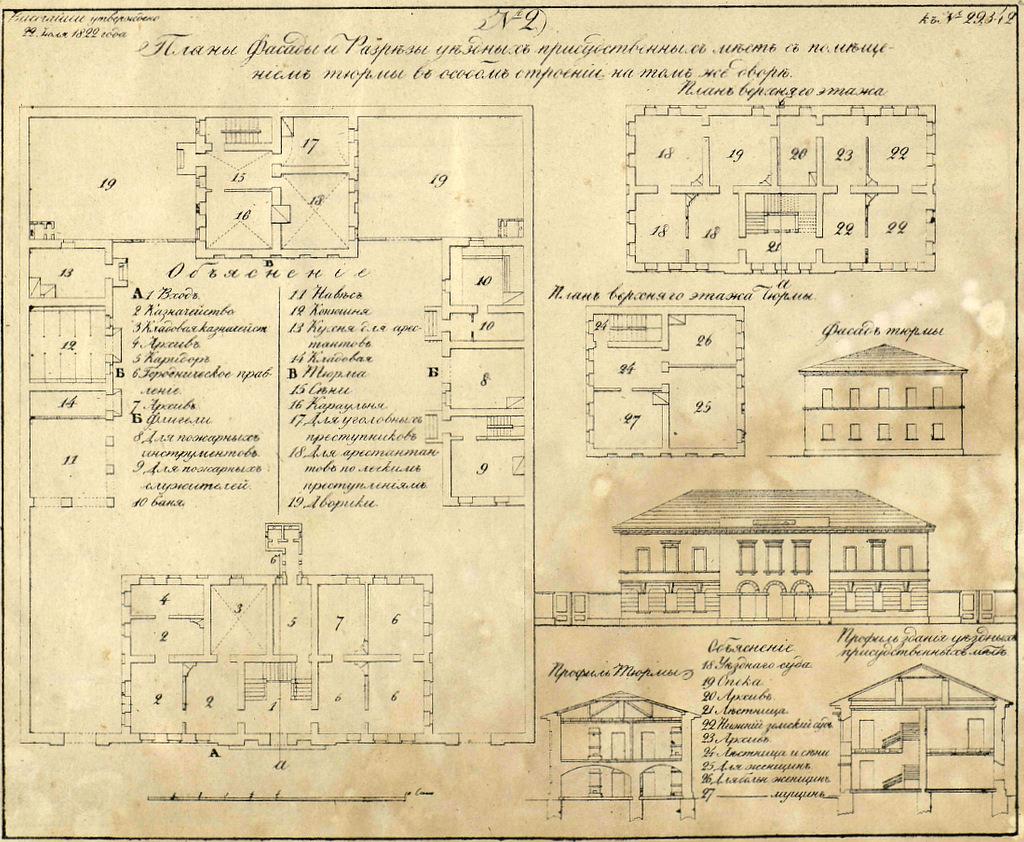 Высочайше утверждено
22 Іюля 1822 года
№ 2)
къ № 29342
Планы Фасады и Разрѣзы уѣздныхъ присудственныхъ мѣстъ съ помѣще-
ніемъ тюрмы въ особомъ строеніи на томъ же дворѣ.
Планъ верхняго этажа
19
15
16
17
18
19
В
18
19
20
23
22
18
18
21
22
22
а
Объясненіе
13
12
14
11
Б
А 1 Входъ
2 Казначейство
3 Кладовая казначейст
4 Архивъ
5 Каридоръ
6 Городническое прав-
леніе
7 Архивъ
Б Флигели
8 Для пожарныхъ
инструментовъ
9 Для пожарныхъ
служителей
10 баня
11 Навѣсъ
12 Конюшня
13 Кухня для арес-
тантовъ
14 Кладовая
В Тюрма
15 Сѣни
16 Караульня
17 Для уголовныхъ
преступниковъ
18 Для арестантан-
товъ по легкимъ
преступленіямъ
19 Дворики
Б
10
10
8
9
Планъ верхняго этажа Тюрмы
24
26
24
27
25
Фасадъ тюрмы
6
4
3
5
7
6
2
2
2
1
6
6
А
а
Профиль Тюрмы
Объясненіе
18 Уѣзднаго суда
19 Опека
20 Архивъ
21 Лѣстница
22 Нижній земскій судъ
23 Архивъ
24 Лѣстница и сѣни
25 Для женщинъ
26 Для больн женщинъ
27 — мущинъ
Профиль зданія уѣздныхъ
присудственныхъ мѣстъ